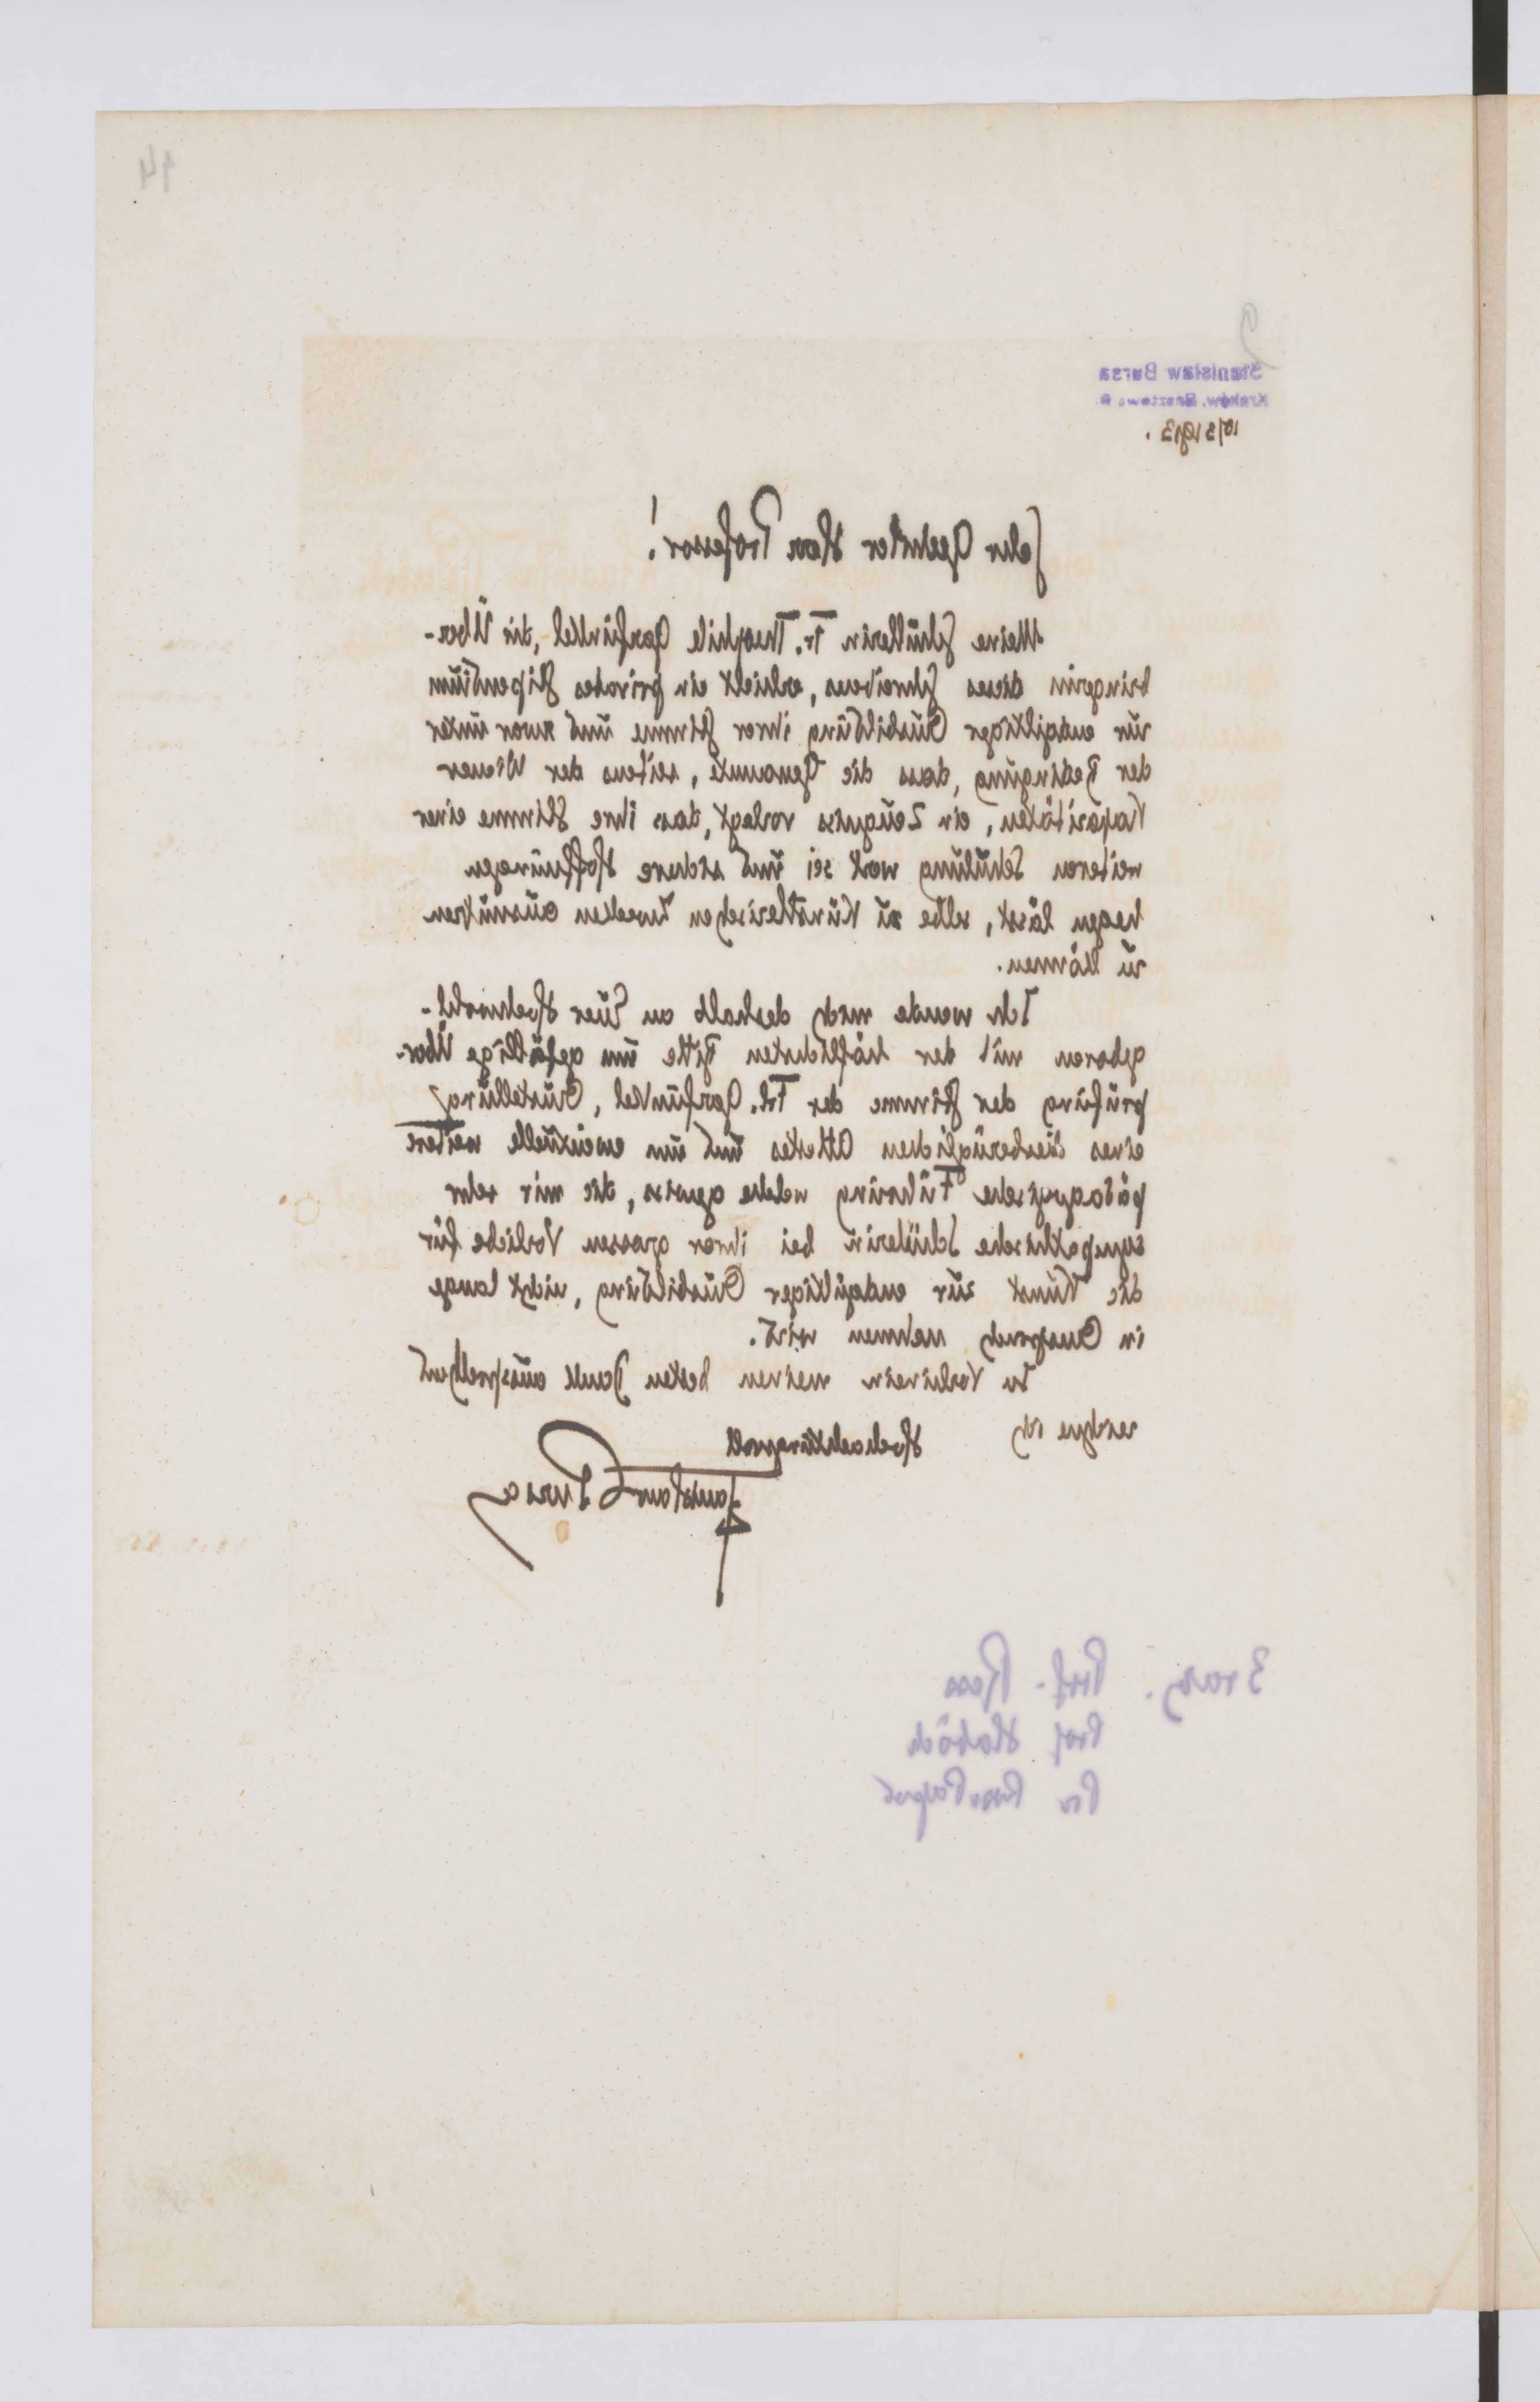 14
2
Stanisław Bursa
Kraków, Basztowa
10/3 1913.
Sehr Geehrter Herr Professor!
Meine Schüllerin Fr. Theophile Garfunkel, die Über-
bringerin dieses Schreibens, erhielt ein privates Stipendium
zur endgiltiger Ausbildung ihrer Stimme und zwar unter
der Bedingung, dass die Genannte, seitens der Wiener
Kapazitäten, ein Zeugniss vorlegt, dass ihre Stimme einer
weiteren Schulung wert sei und sichere Hoffnungen
hegen lässt, selbe zu Künstlerischen Zwecken ausnützen
zu können.
Ich wende mich deshalb an Euer Hochwohl-
geboren mit der höflichsten Bitte um gefällige Über-
prüfung der Stimme der Frl. Garfunkel, Ausstellung
eines diesbezüglichen Attestes und um eweintuelle weitere
pädagogische Führung welche gewiss, die mir sehr
sympathische Schülerin bei ihrer grossen Vorliebe für
die Kunst zur endgültiger Ausbildung, nicht lange
in Anspruch nehmen wird.
Im Vorhinein meinen besten Dank aussprechend
zeichne ich Hochachtungsvoll
Stanisław Bursa
3 razy. Prof. Ress
Prof Haböck